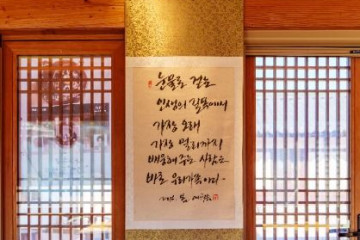 눈물로 걷는
인생의 길목에서
가장 오래
가장 멀리까지
배웅해 주는 사람은
바로 우리가족이다.